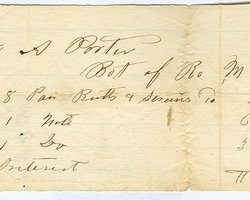 A Porter
Bot of Ro M
8 Pair Butts & Screws
1 Note 6
1 Do
Interest
11